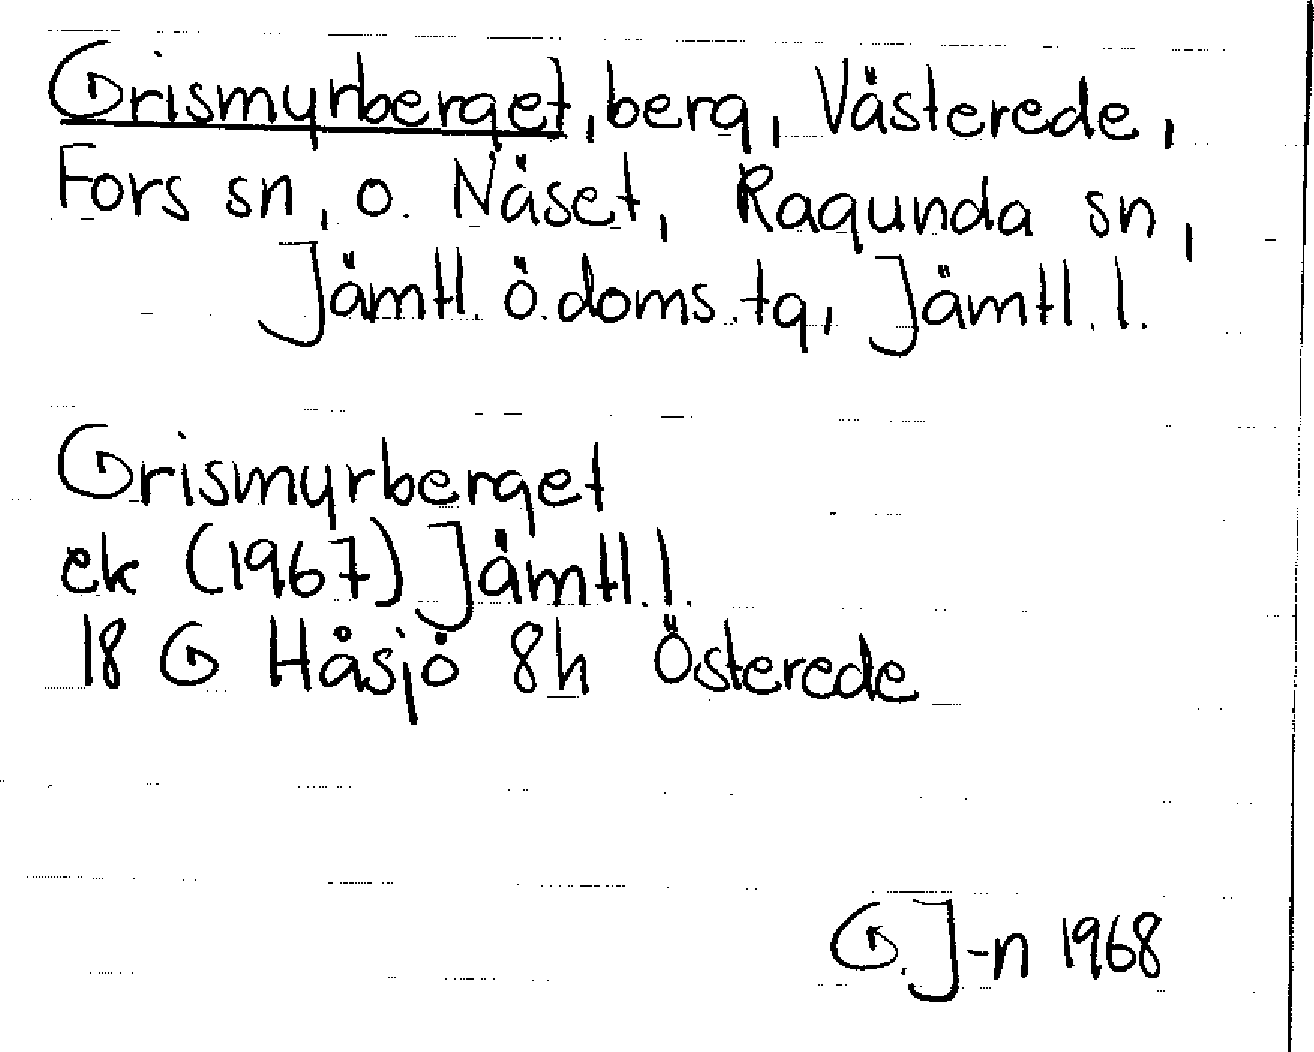 Grismyrberget, berg, Västerede,
Fors sn, o. Näset, Ragunda sn,
Jämtl. ö. doms. tg, Jämtl. l.
Grismyrberget
ek (1967) Jämtl. l.
18 G Håsjö 8h Österede
G. J-n 1968